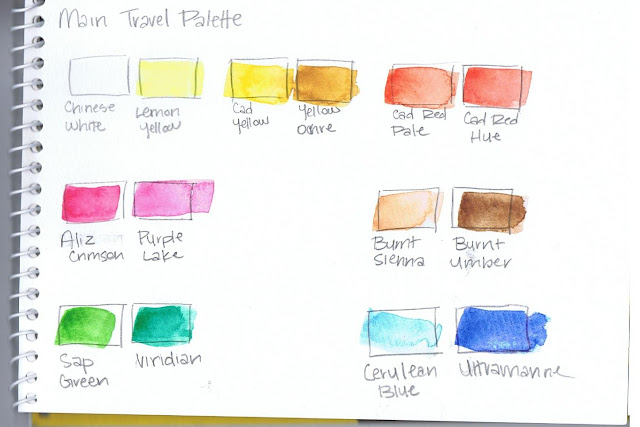 Main Travel Palette
Chinese
White
Lemon
Yellow
Cad
Yellow
Yellow
Ochre
Cad Red
Pale
Cad Red
Hue
Aliz
Crimson
Purple
Lake
Burnt
Sienna
Burnt
Umber
Sap
Green
Viridian
Cerulean
Blue
Ultramarine